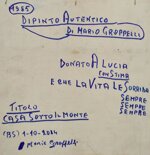 1985
DIPINTO AUTENTICO
DI MARIO GROPPELLI
DONATO A LUCIA
CON STIMA
E CHE LA VITA LE SORRIDA
SEMPRE
SEMPRE
SEMPRE
TITOLO
CASA SOTTO IL MONTE
(BS) 1-10-2024
Mario Groppelli